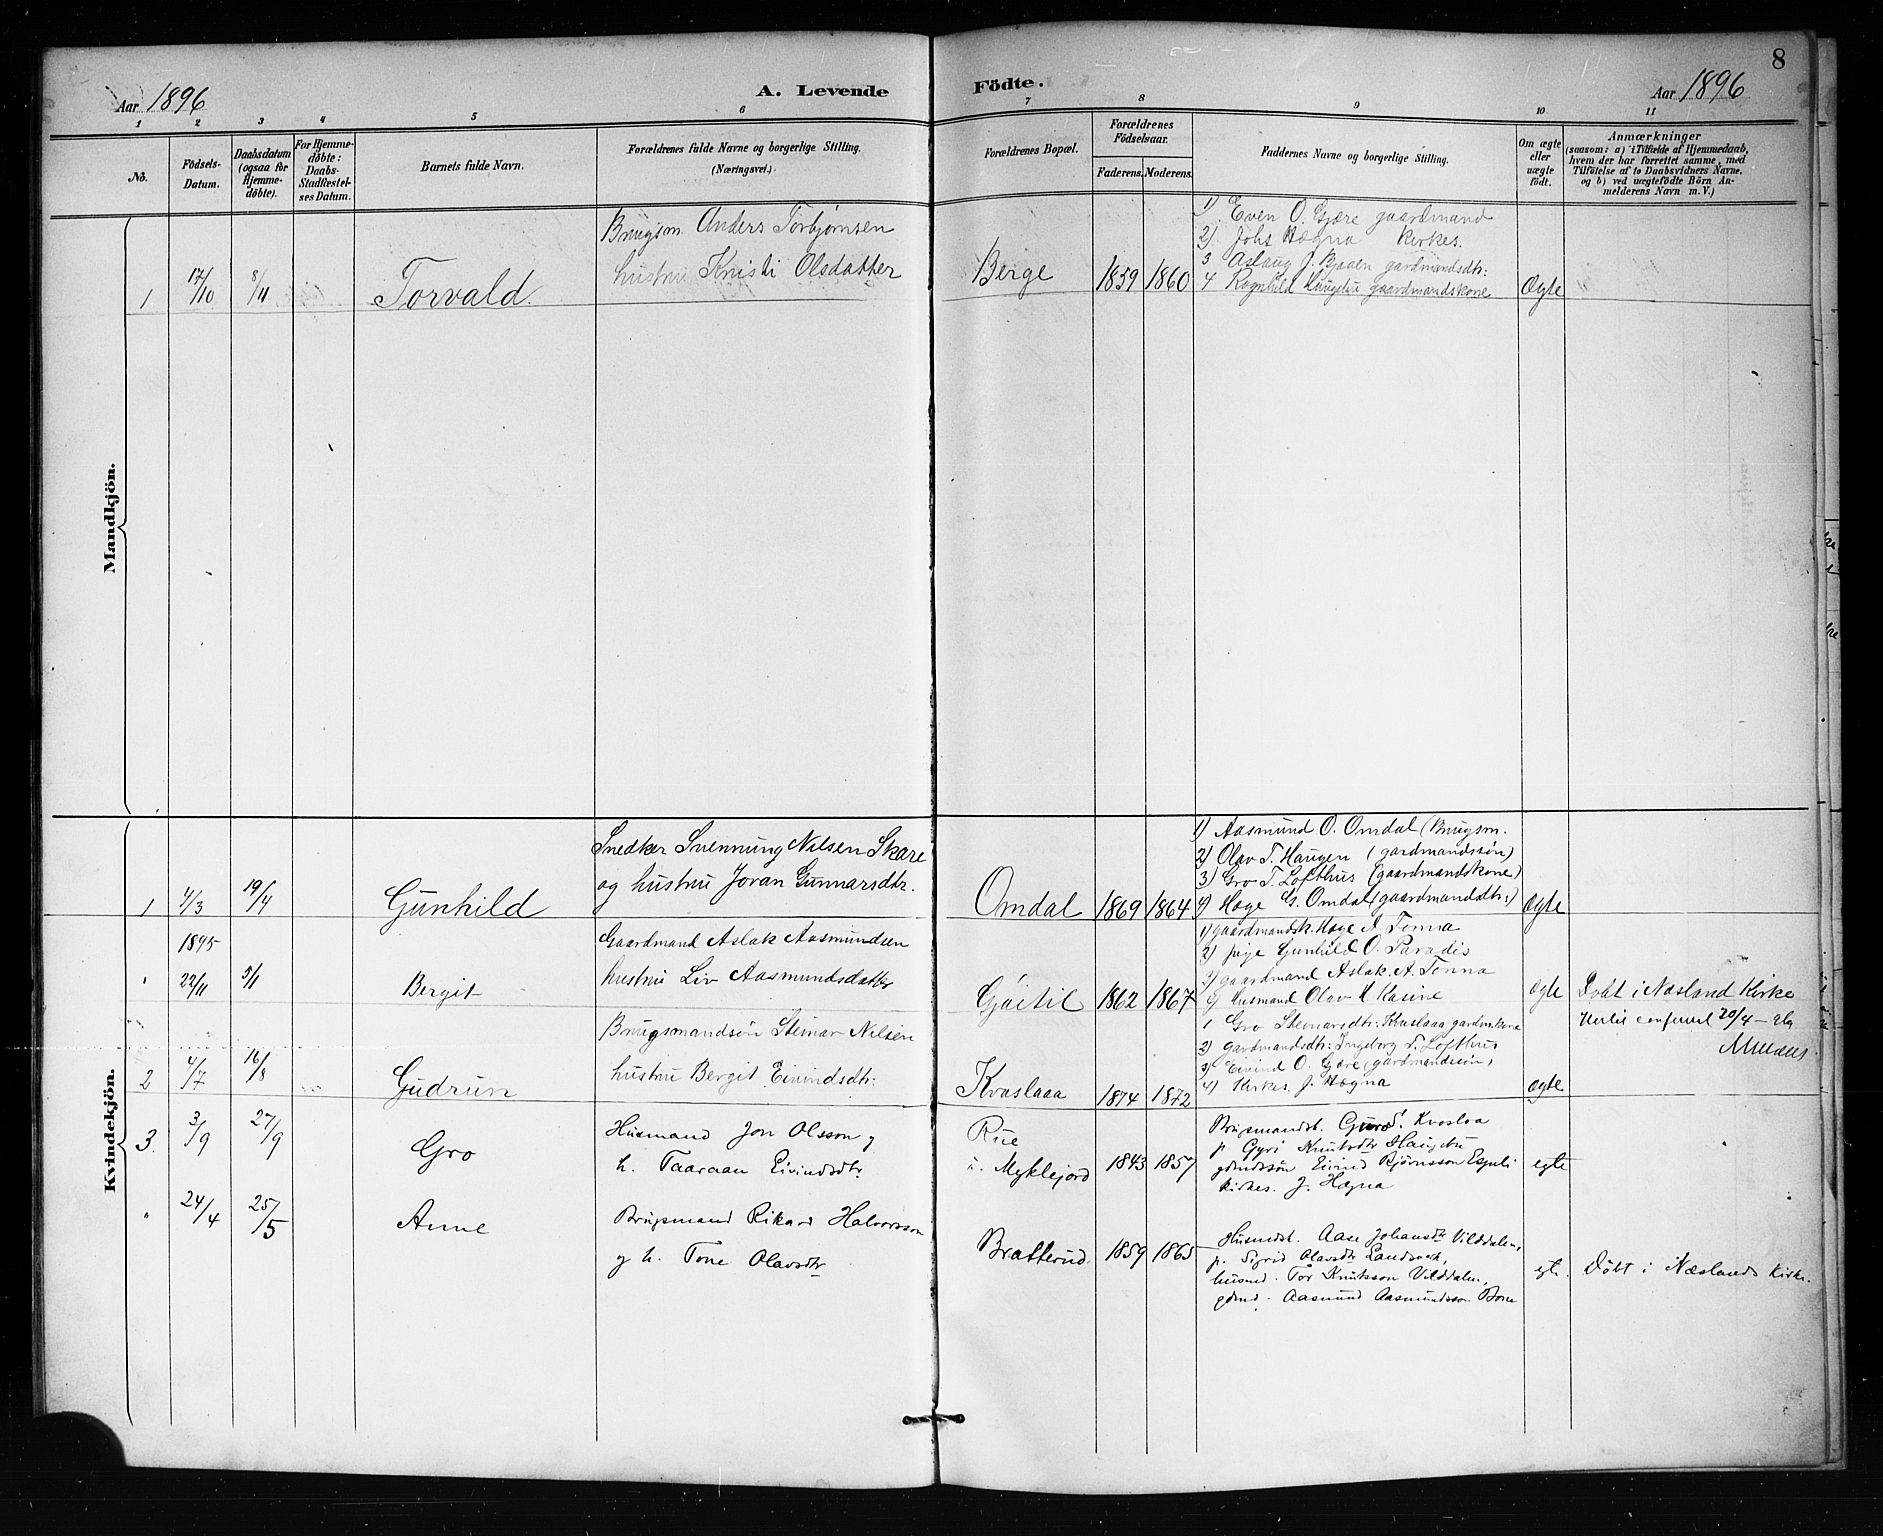 8
Aar 1896
A. Levende Födte.
Aar 1896
1 2 3 4 5 6 7 8 9 10 11
No.
Födsels-Datum.
Daabsdatum (ogsaa for Hjemmedöbte).
For Hjemmedöbte: Daabs-Stadfæstelses Datum.
Barnets fulde Navn.
Forældrenes fulde Navne og borgerlige Stilling.
(Næringsvei.)
Forældrenes Bopæl.
Forældrenes Födselsaar.
Faderens. Moderens.
Faddernes Navne og borgerlige Stilling.
Om ægte eller uægte födt.
Anmærkninger
(saasom: a) i Tilfælde af Hjemmedaab,
hvem der har forrettet samme, med
Tilföielse af to Daabsvidners Navne.
og b) ved uægtefödte Börn An-
melderens Navn m. V.)
Mandkjön.
1 17/10 8/11 Torvald
Brugsm. Anders Torbjørnsen
hustru Kristi Olsdatter
Berge 1859 1860
1) Even O. Gjøre gaardmand
2) Johs Hægna Kirkes.
3 Aslaug J. Bjaaen gardmandsdtr:
4 Ragnhild Haugetu gaardmandskone
Ægte
Kvindekjön.
1 4/3 19/4 Gunhild
Snedker Svennung Nilsen Skare
og hustru Joran Gunnarsdtr.
Omdal 1869 1864
1) Aasmund O. Omdal (Brugsm.
2) Olav T. Haugen (gardmandssøn)
3) Gro T. Lofthus (gaardmandskone)
4) Hæge G. Omdal (gaardmandsdtr:)
Ægte
" 1895 22/11 5/1 Bergit
Gaardmand Aslak Aasmundsen
hustru Liv Aasmundsdatter
Gøitil 1862 1867
1) gaardmandsk. Hæge A. Tonna
2) pige Gunhild O. Paradis
3) gaardmand Aslak A. Tonna
4) Husmand Olav K Kasine
ægte
Døbt i Næsland Kirke
20/4
2 4/7 16/8 Gudrun
Brugsmandsøn Steinar Nilsen
hustru Bergit Eivindsdtr:
Kvaslaaa 1874 1872
1 Gro Steinarsdtr: Kvaslaaa gardm.kone
2) gardmandsdtr: Ingeborg T. Lofthus
3) Eivind O. Gjøre (gardmandssøn,
4) Kirkes. J. Hægna
ægte
3 3/9 27/9 Gro
Husmand Jon Olsson g
h. Taaraan Eivindsdtr
Rue
i. Myklejord 1843 1857
Brugsmandsk. Guro S. Kvaslaa
p. Gyri Knutsdtr Haugetu
gdmdssøn Eivind Bjørnsson Espeli
Kirkes. J. Hægna
egte
" 24/4 25/5 Anne
Brugsmand Rikard Halvorsson
g h. Tone Olavsdtr
Bratterud 1859 1865
Husmdsk. Aase Johansdtr Vilddalen,
p. Sigrid Olavsdtr Landsverk,
husmd. Tor Knutsson Vilddalen,
gdmd. Aasmund Aasmundsson Bone
egte.
Døbt i Næslands Kirke.